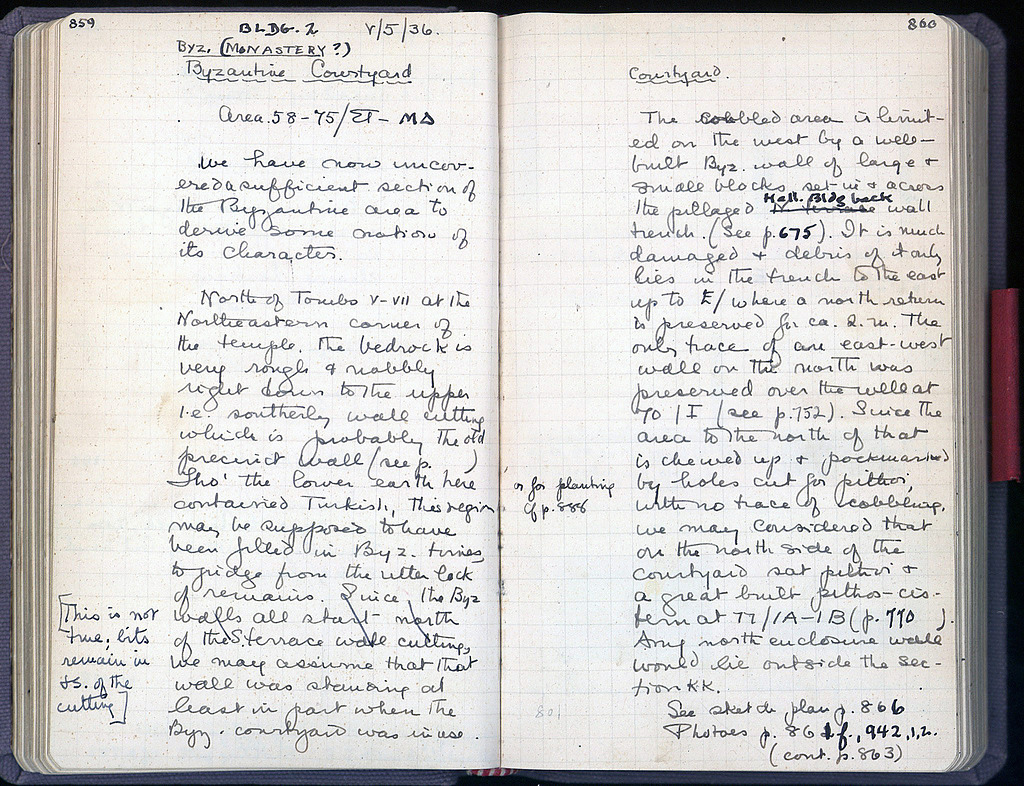 859
BLDG. 2 V/5/36.
BYZ. (MONASTERY?)
Byzantine Courtyard
Area 58-75/ - MΔ
We have now uncov-
ered a sufficient section of
the Byzantine area to
derive some notion of
its character.
North of Tombs V-VII at the
Northeastern corner of
the temple. The bedrock is
very rough & nobbly
right down to the upper
i.e. southerly wall cutting
which is probably the old
precinct wall (see p. )
Tho' the lower earth here
contained Turkish, this region
may be supposed to have
been filled in Byz. times,
to judge from the utter lack
of remains. Since, the Byz
walls all start north
of the S. terrace wall cutting,
we may assume that that
wall was standing at
least in part when the
Byz. courtyard was in use.
[This is not
true; bits
remain in
& s. of the
cutting]
860
Courtyard.
The cobbled area is limit-
ed on the west by a well-
built Byz. wall of large &
small blocks set in & across
the pillaged Hell. Bldg back wall
trench. (See p. 675). It is much
damaged & debris of it only
lies in the trench to the east
up to E/ where a north return
is preserved for ca. 2. m. The
only trace of an east-west
wall on the north was
preserved over the well at
70/I (see p. 752). Since the
area to the north of that
is chewed up & pockmarked
by holes cut for pithoi,
or for planting
cf p. 886
with no trace of cobbling,
we may considered that
on the north side of the
courtyard sat pithoi &
a great built pithos-cis-
tern at 77/IA-IB (p. 770 ).
Any north enclosure wall
would lie outside the sec-
tion KK.
See sketch plan p. 866
Photoes p. 861f., 942,1,2.
(cont. p. 863)
801